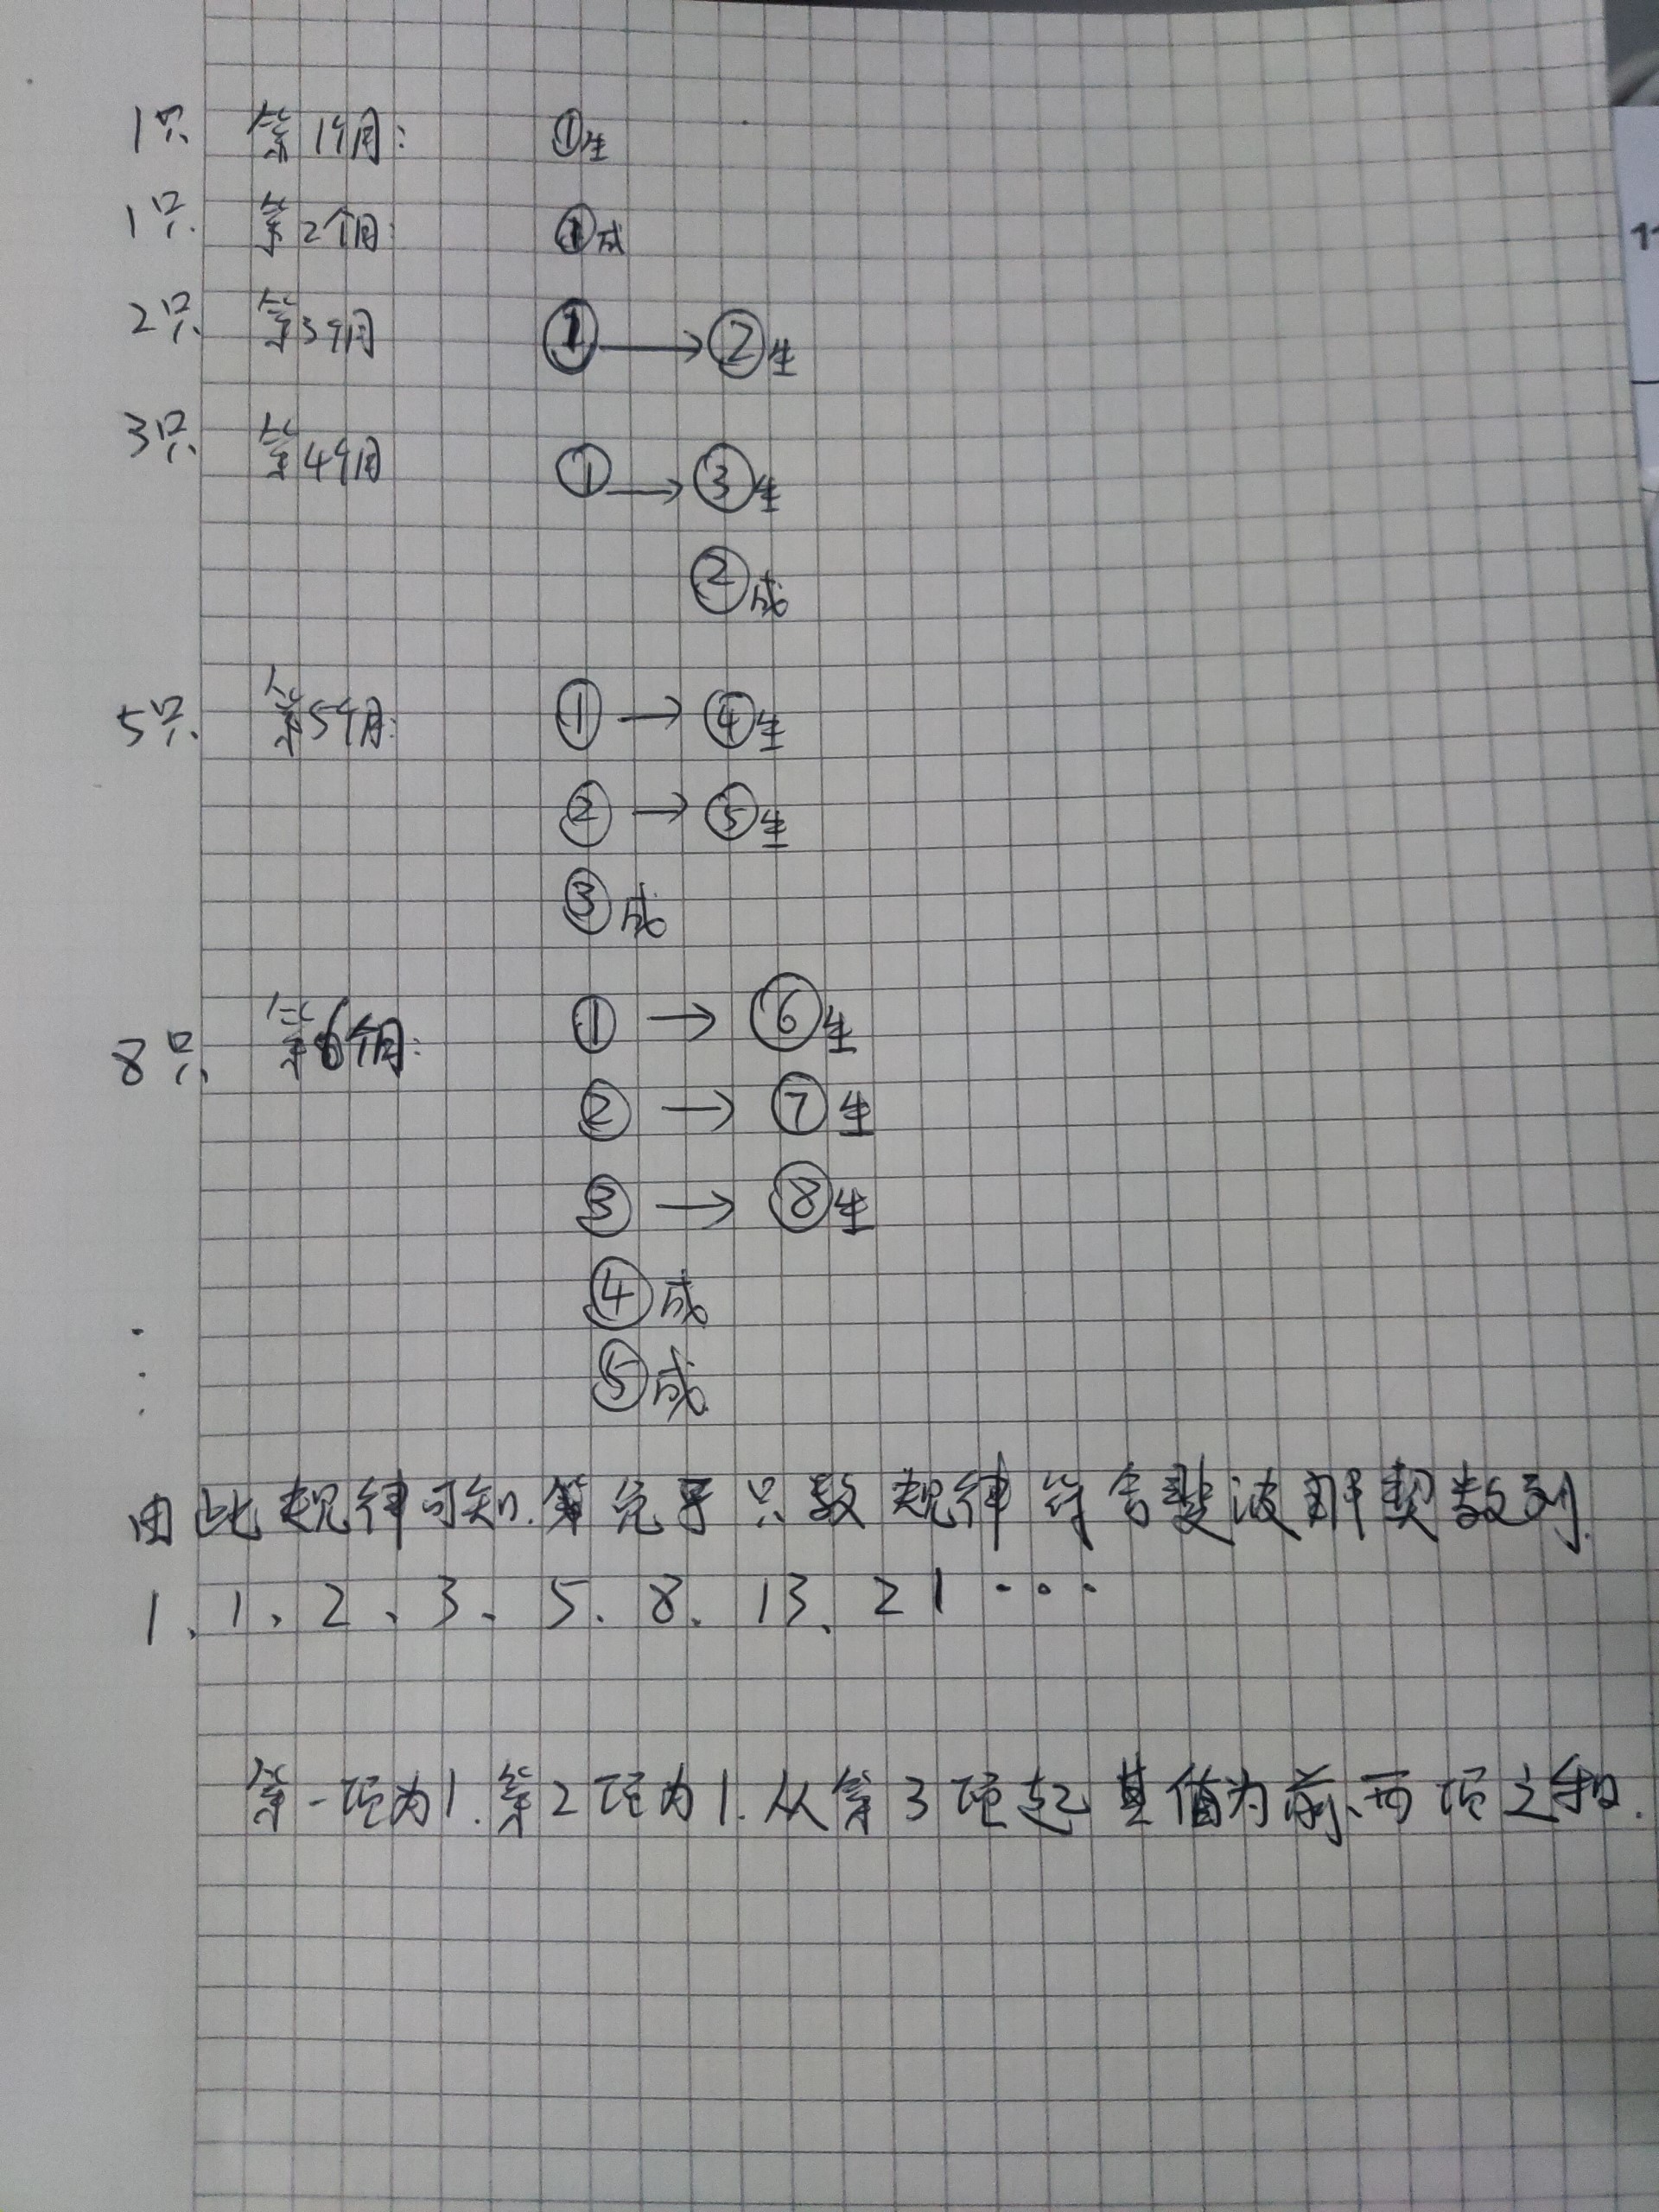 1只 第1个月: ①生
1只 第2个月: ①成
2只 第3个月 ①→②生
3只 第4个月 ①→③生
②成
5只 第5个月: ①→④生
②→⑤生
③成
8只 第6个月: ①→⑥生
②→⑦生
③→⑧生
④成
⑤成
⋮
由此规律可知.兔子只数规律符合斐波那契数列.
1、1、2、3、5、8、13、21…
第一项为1.第2项为1.从第3项起其值为前两项之和.